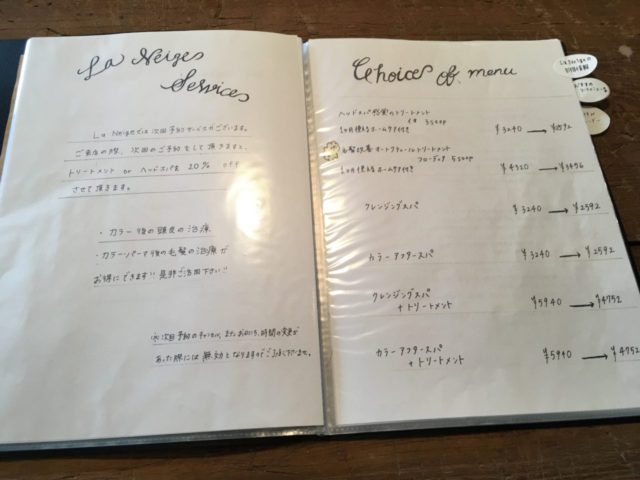 La Neiges
Services
La Neigeでは次回予約サービスがございます。
ご来店の際、次回のご予約をして頂きますと、
トリートメント or ヘッドスパを 20% off
させて頂きます。
・カラー後の頭皮の治療
・カラーパーマ後の毛髪の治療が
お得にできます!! 是非ご活用下さい!!
次回予約のキャンセル、またお日にち、時間の変更が
あった際には無効となりますのでご了承くださいませ。
Choices of menu
トリートメント
3 step
1ヶ月使えるホームケア付き ¥3240 → ¥2592
トリートメント
5 step
1ヶ月使えるホームケア付き ¥4320 → ¥3456
クレンジングスパ ¥3240 → ¥2592
カラーアフタースパ ¥3240 → ¥2592
クレンジングスパ
+トリートメント ¥5940 → ¥4752
カラーアフタースパ
+トリートメント ¥5940 → ¥4752